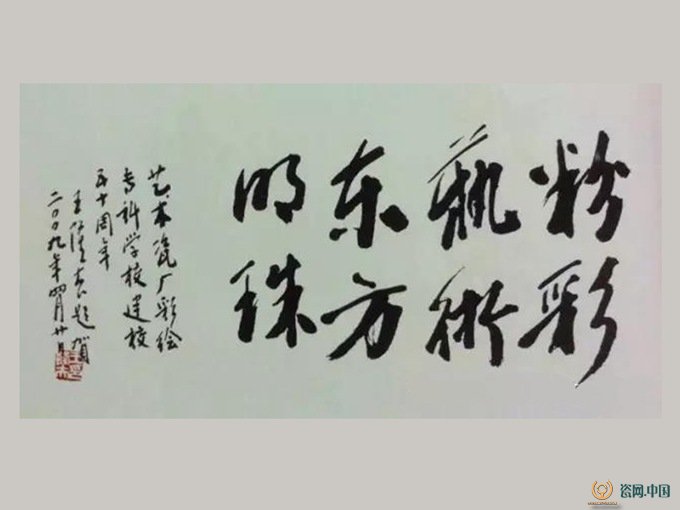 粉彩
藝術
东方
明珠
艺术瓷厂彩绘
专科学校建校
五十周年
题贺
二〇〇九年四月廿日
瓷网.中国